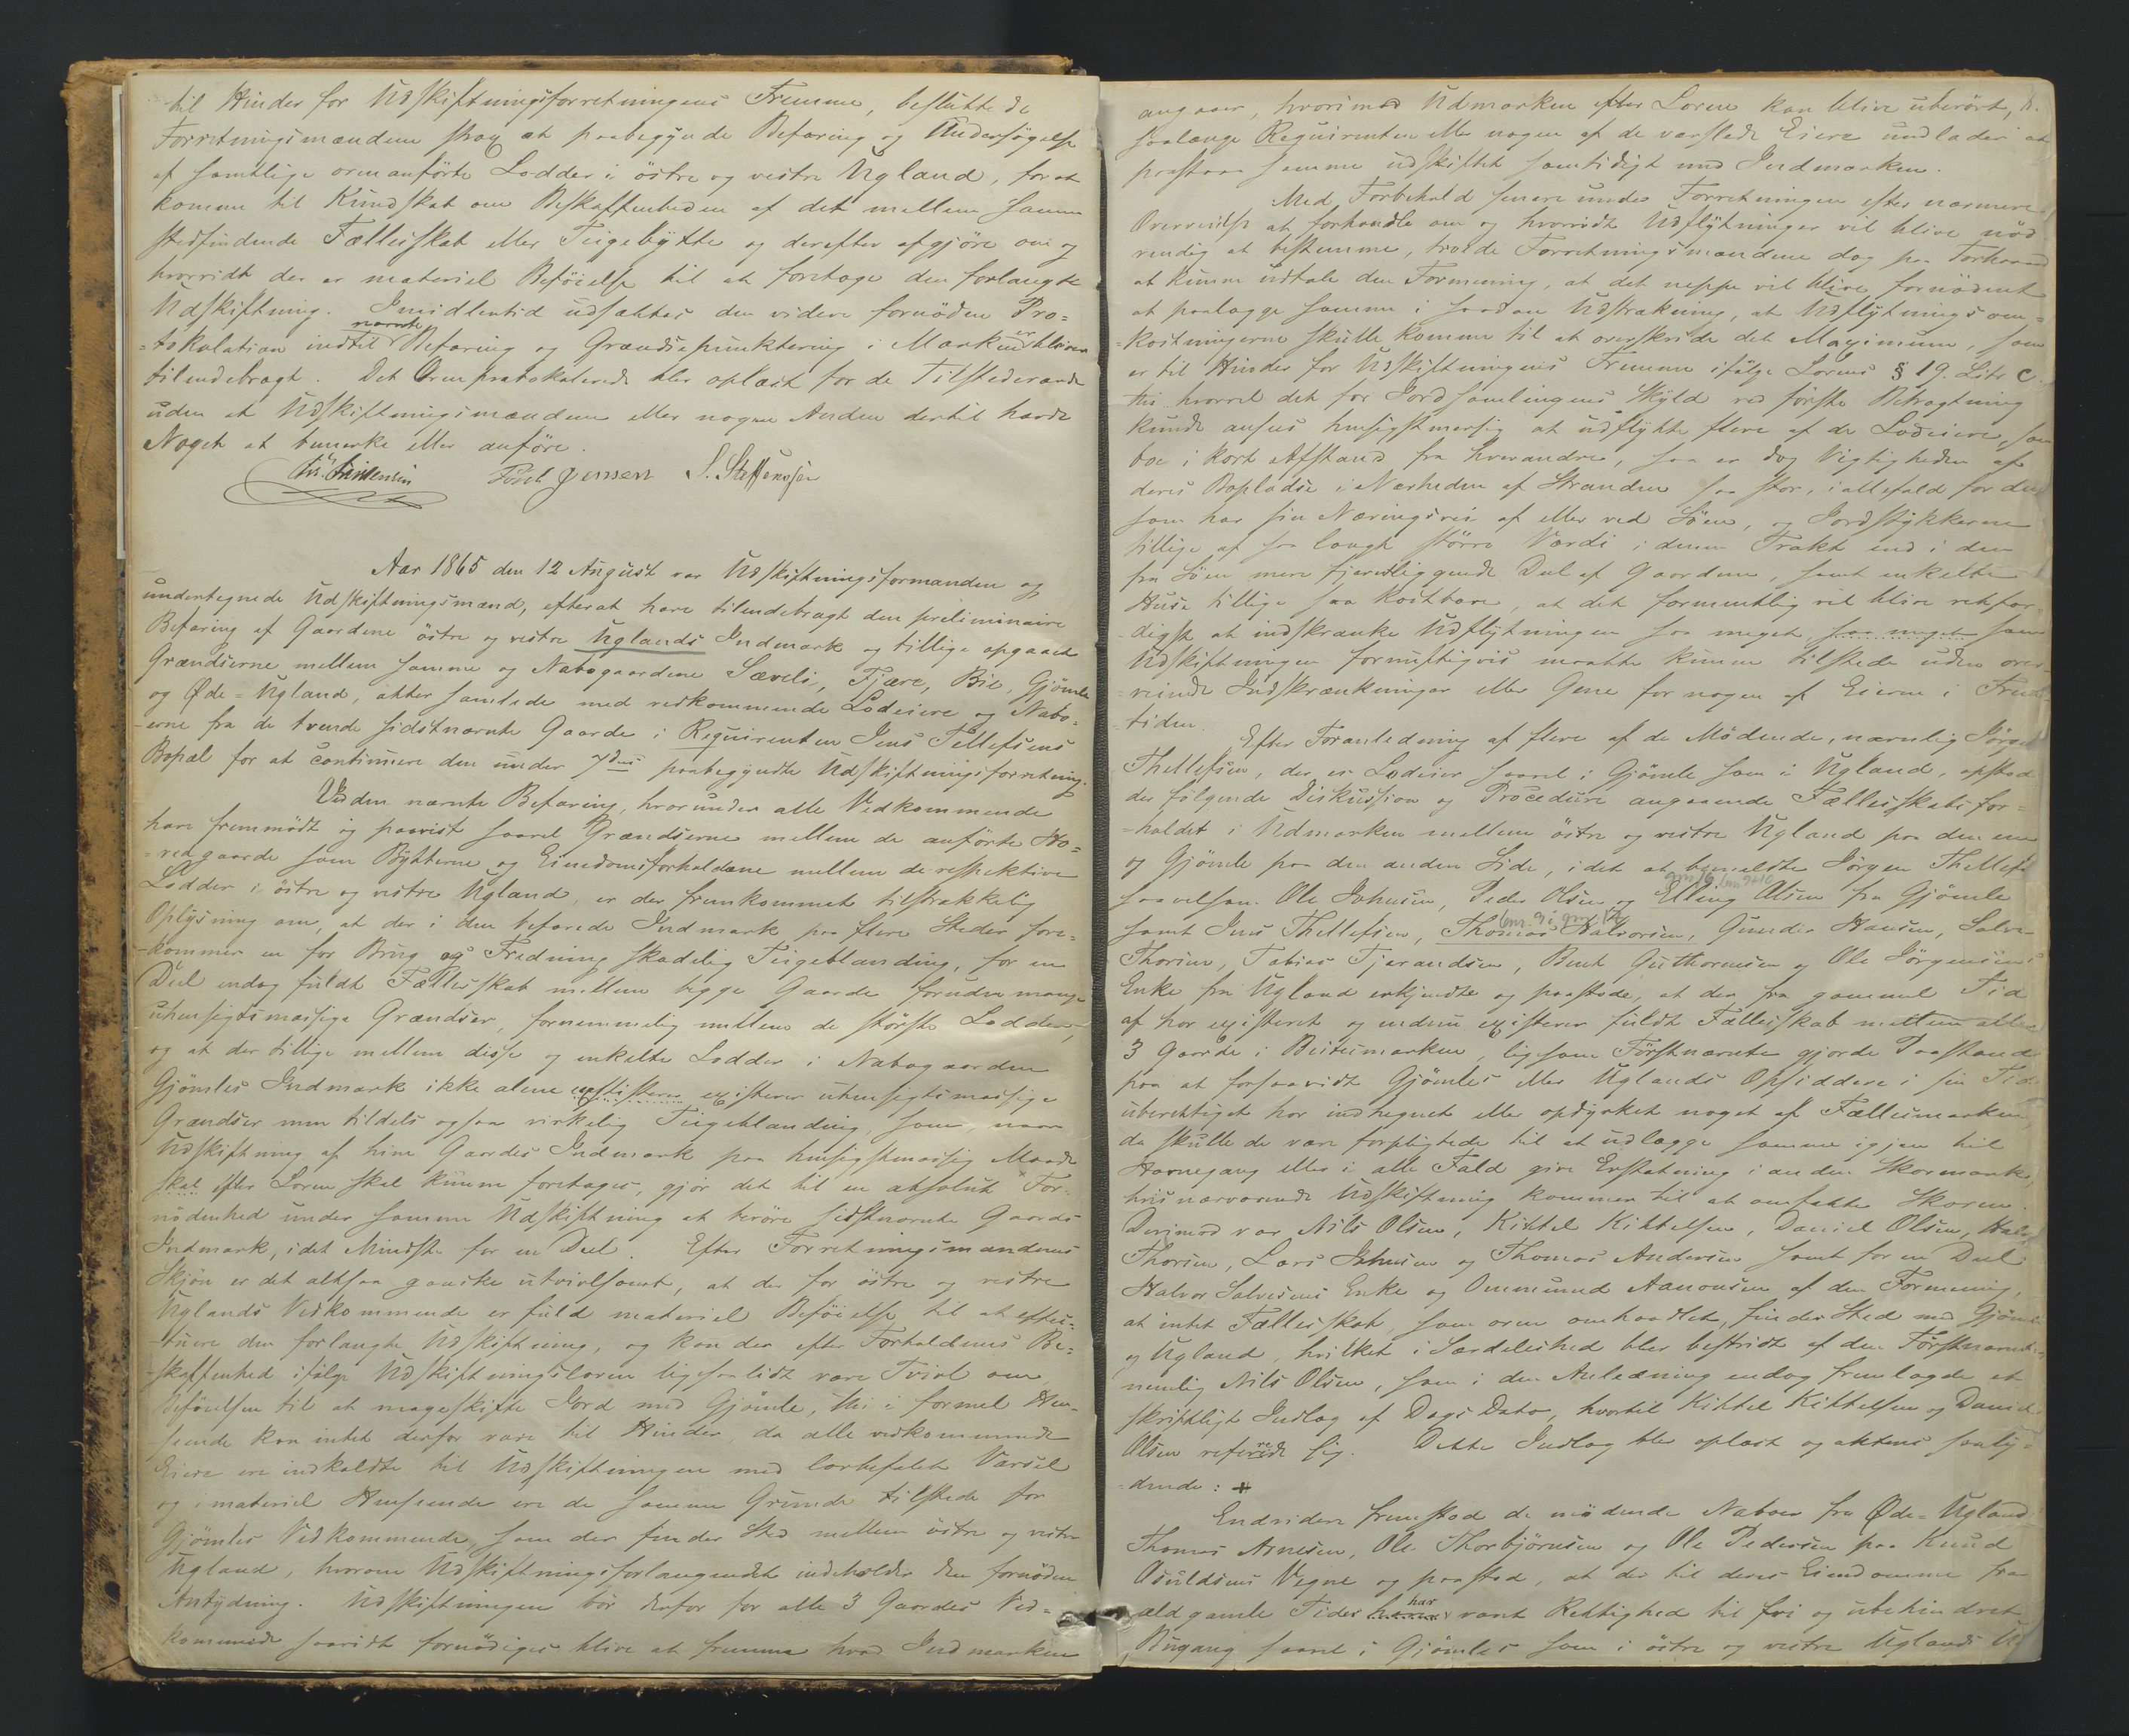 til Hinder for Udskiftningsforretningens Fremme, besluttede
Forretningsmændene strax at paabegynde Befaring og Undersøgelse
af samtlige ovenanførte Lodder i östre og vestre Ugland, for at
komme til Kundskab om Beskaffenheden af det mellem samme
stedfindende Fællesskab eller Teigebytte og derefter afgjöre om og
hvorvidt der er materiel Beföielse til at foretage den forlangte
Udskiftning. Imidlertid udsættes den videre fornödne Pro=
nævnte
=tokolation indtil Befaring og Grændsepunktering i Marken er bleven
tilendebragt. Det Ovenprotokolerede blev oplæst for de Tilstedeværende
uden at Udskiftningsmændene eller nogen Anden dertil havde
Noget at bemærke eller anföre.
Jensen S. Steffensen
Aar 1865 den 12 August var Udskiftningsformanden og
undertegnede Udskiftningsmænd, efterat have tilendebragt den preliminaire
Befaring af Gaardene östre og vestre Uglands Indmark og tillige opgaaet
Grændserne mellem samme og Nabogaardene Sæveli, Fjære, Bie, Gjömle
og Øde=Ugland, atter samlede med vedkommende Lodeiere og Nabo=
=erne fra de tvende sidstnævnte Gaarde i Requirenten Jens Tellefsens
Bopæl for at continuere den under 7des paabegyndte Udskiftningsforretning.
Ved den nævnte Befaring, hvorunder alle Vedkommende
have fremmödt og paavist saavel Grændserne mellem de anförte Ho=
=vedgaarde som Bytterne og Eiendomsforholdene mellem de respektive
Lodder i östre og vestre Ugland, er der fremkommet tilstrækkelig
Oplysning om, at der i den befarede Indmark paa flere Steder fore=
=kommer en for Brug og Fredning skadelig Teigeblanding, for en
Deel endog fuldt Fællesskab mellem begge Gaarde foruden mange
uhensigtsmæssige Grændser, fornemmelig mellem de störste Lodder,
og at der tillige mellem disse og enkelte Lodder i Nabogaarden
Gjömles Indmark ikke alene existerer uhensigtsmæssige
Grændser men tildels ogsaa virkelig Teigeblanding, som, naar
Udskiftning af hine Gaardes Indmark paa hensigtsmæssig Maade
skal efter Loven skal kunne foretages, gjör det til en absolut For=
nödenhed under samme Udskiftning at beröre sidstnævnte Gaards
Indmark, i det Mindste for en Deel. Efter Forretningsmændenes
Skjön er det altsaa ganske utvivlsomt, at der for östre og vestre
Uglands Vedkommende er fuld materiel Beföielse til at effec=
tuere den forlangte Udskiftning, og kan der efter Forholdenes Be=
skaffenhed ifölge Udskiftningsloven ligesaalidt være Tvivl om
Beföielsen til at mageskifte Jord med Gjömle, thi i formel Hen=
seende kan intet derfor være til Hinder, da alle vedkommende
Eiere ere indkaldte til Udskiftningen med lovbefalet Varsel
og i materiel Henseende ere de samme Grunde tilstede for
Gjömles Vedkommende, som der finder Sted mellem östre og vestre
Ugland, hvorom Udskiftningsforlangendet indeholder den fornödne
Antydning. Udskiftningen bör derfor for alle 3 Gaardes Ved=
kommende saavidt fornödiges blive at fremme hvad Indmarken
angaaer, hvorimod Udmarken efter Loven kan blive uberört,
saalænge Requirenten eller nogen af de varslede Eiere undlader at
paastaa samme udskiftet samtidigt med Indmarken.
Med Forbehold senere under Forretningen efter nærmere
Overveielse at forhandle om og hvorvidt Udflytninger vil blive nöd
vendig at bestemme, troede Forretningsmændene dog paa Forhaand
at kunne udtale den Formening, at det neppe vil blive fornödent
at paalægge samme i saadan Udstrækning, at Udflytningsom=
=kostningerne skulle komme til at overskride det Maximum, som
er til Hinder for Udskiftningens Fremme ifölge Lovens § 19. Litr. C.
thi hvorvel det for Jordsamlingens Skyld ved förste Betragtning
kunde ansees hensigtsmæssig at udflytte flere af de Lodeiere, som
boe i kort Afstand fra hverandre, saa er dog Vigtigheden af
deres Bopladse i Nærheden af Stranden saa stor, i alfald for dem
som har sin Næringsvei af eller ved Söen, og Jordstykkerne
tillige af saa langt större Værdi i denne Trakt end i den
fra Söen mere fjerntliggende Deel af Gaardene, samt enkelte
Huse tillige saa kostbare, at det formentlig vil blive retfær=
digst at indskrænke Udflytningen saa meget saa meget som
Udskiftningen fornuftigvis maatte kunne tilstede uden over=
=veiende Indskrænkninger eller Gene for nogen af Eierne i Frem=
tiden.
Efter Foranledning af flere af de Mödende, nævnlig Jörgen
Thellefsen, der er Lodeier saavel i Gjömle som i Ugland, opstod
der fölgende Diskussion og Procedure angaaende Fællesskabsfor=
=holdet i Udmarken mellem östre og vestre Ugland paa den ene
og Gjömle paa den anden Side, idet at bemeldte Jörgen Thellefs
gnr 16 bnr 9+10
saavelsom Ole Johnsen, Peder Olsen og Elling Olsen fra Gjömle
bnr. 9 i gnr 17
samt Jens Thellefsen, Thomas Halvorsen, Gunder Hansen, Salve
Thorsen, Tobias Tjerandsen, Bent Guthormsen og Ole Jörgensens
Enke fra Ugland erkjendte og paastode, at der fra gammel Tid
af har existeret og endnu existerer fuldt Fællesskab mellem alle
3 Gaarde i Beitesmarken, ligesom Förstnævnte gjorde Paastand
paa at forsaavidt Gjömles eller Uglands Opsiddere i sin Tid
uberettiget har indhegnet eller opdyrket noget af Fællesmarken,
da skulle de være forpligtede til at udlægge samme igjen til
Havnegang eller i alle Fald give Erstatning i anden Skovmark,
hvis nærværende Udskiftning kommer til at omfatte Skoven.
Derimod var Nils Olsen, Kittel Kittelsen, Daniel Olsen, Halv
Thorsen, Lars Johnsen og Thomas Andersen samt for en Deel
Halvor Salvesens Enke og Ommund Aanonsen af den Formening,
at intet Fællesskab, som oven omhandlet, finder Sted med Gjömle
og Ugland, hvilket i Særdeleshed blev bestridt af den Förstnævnte
nemlig Nils Olsen, som i den Anledning endog fremlagde et
skriftligt Indlæg af Dags Dato, hvortil Kittel Kittelsen og Daniel
Olsen refererede sig. Dette Indlæg blev oplæst og aktens saaly=
dende: +
Endvidere fremstod de mödende Naboer fra Øde=Ugland
Thomas Arnesen, Ole Thorbjörnsen og Ole Pedersen paa Knud
Osuldsens Vegne og paastod, at der til deres Eiendomme fra
har
ældgamle Tider været Rettighed til fri og ubehindret
Bugang saavel i Gjömles som i östre og vestre Uglands